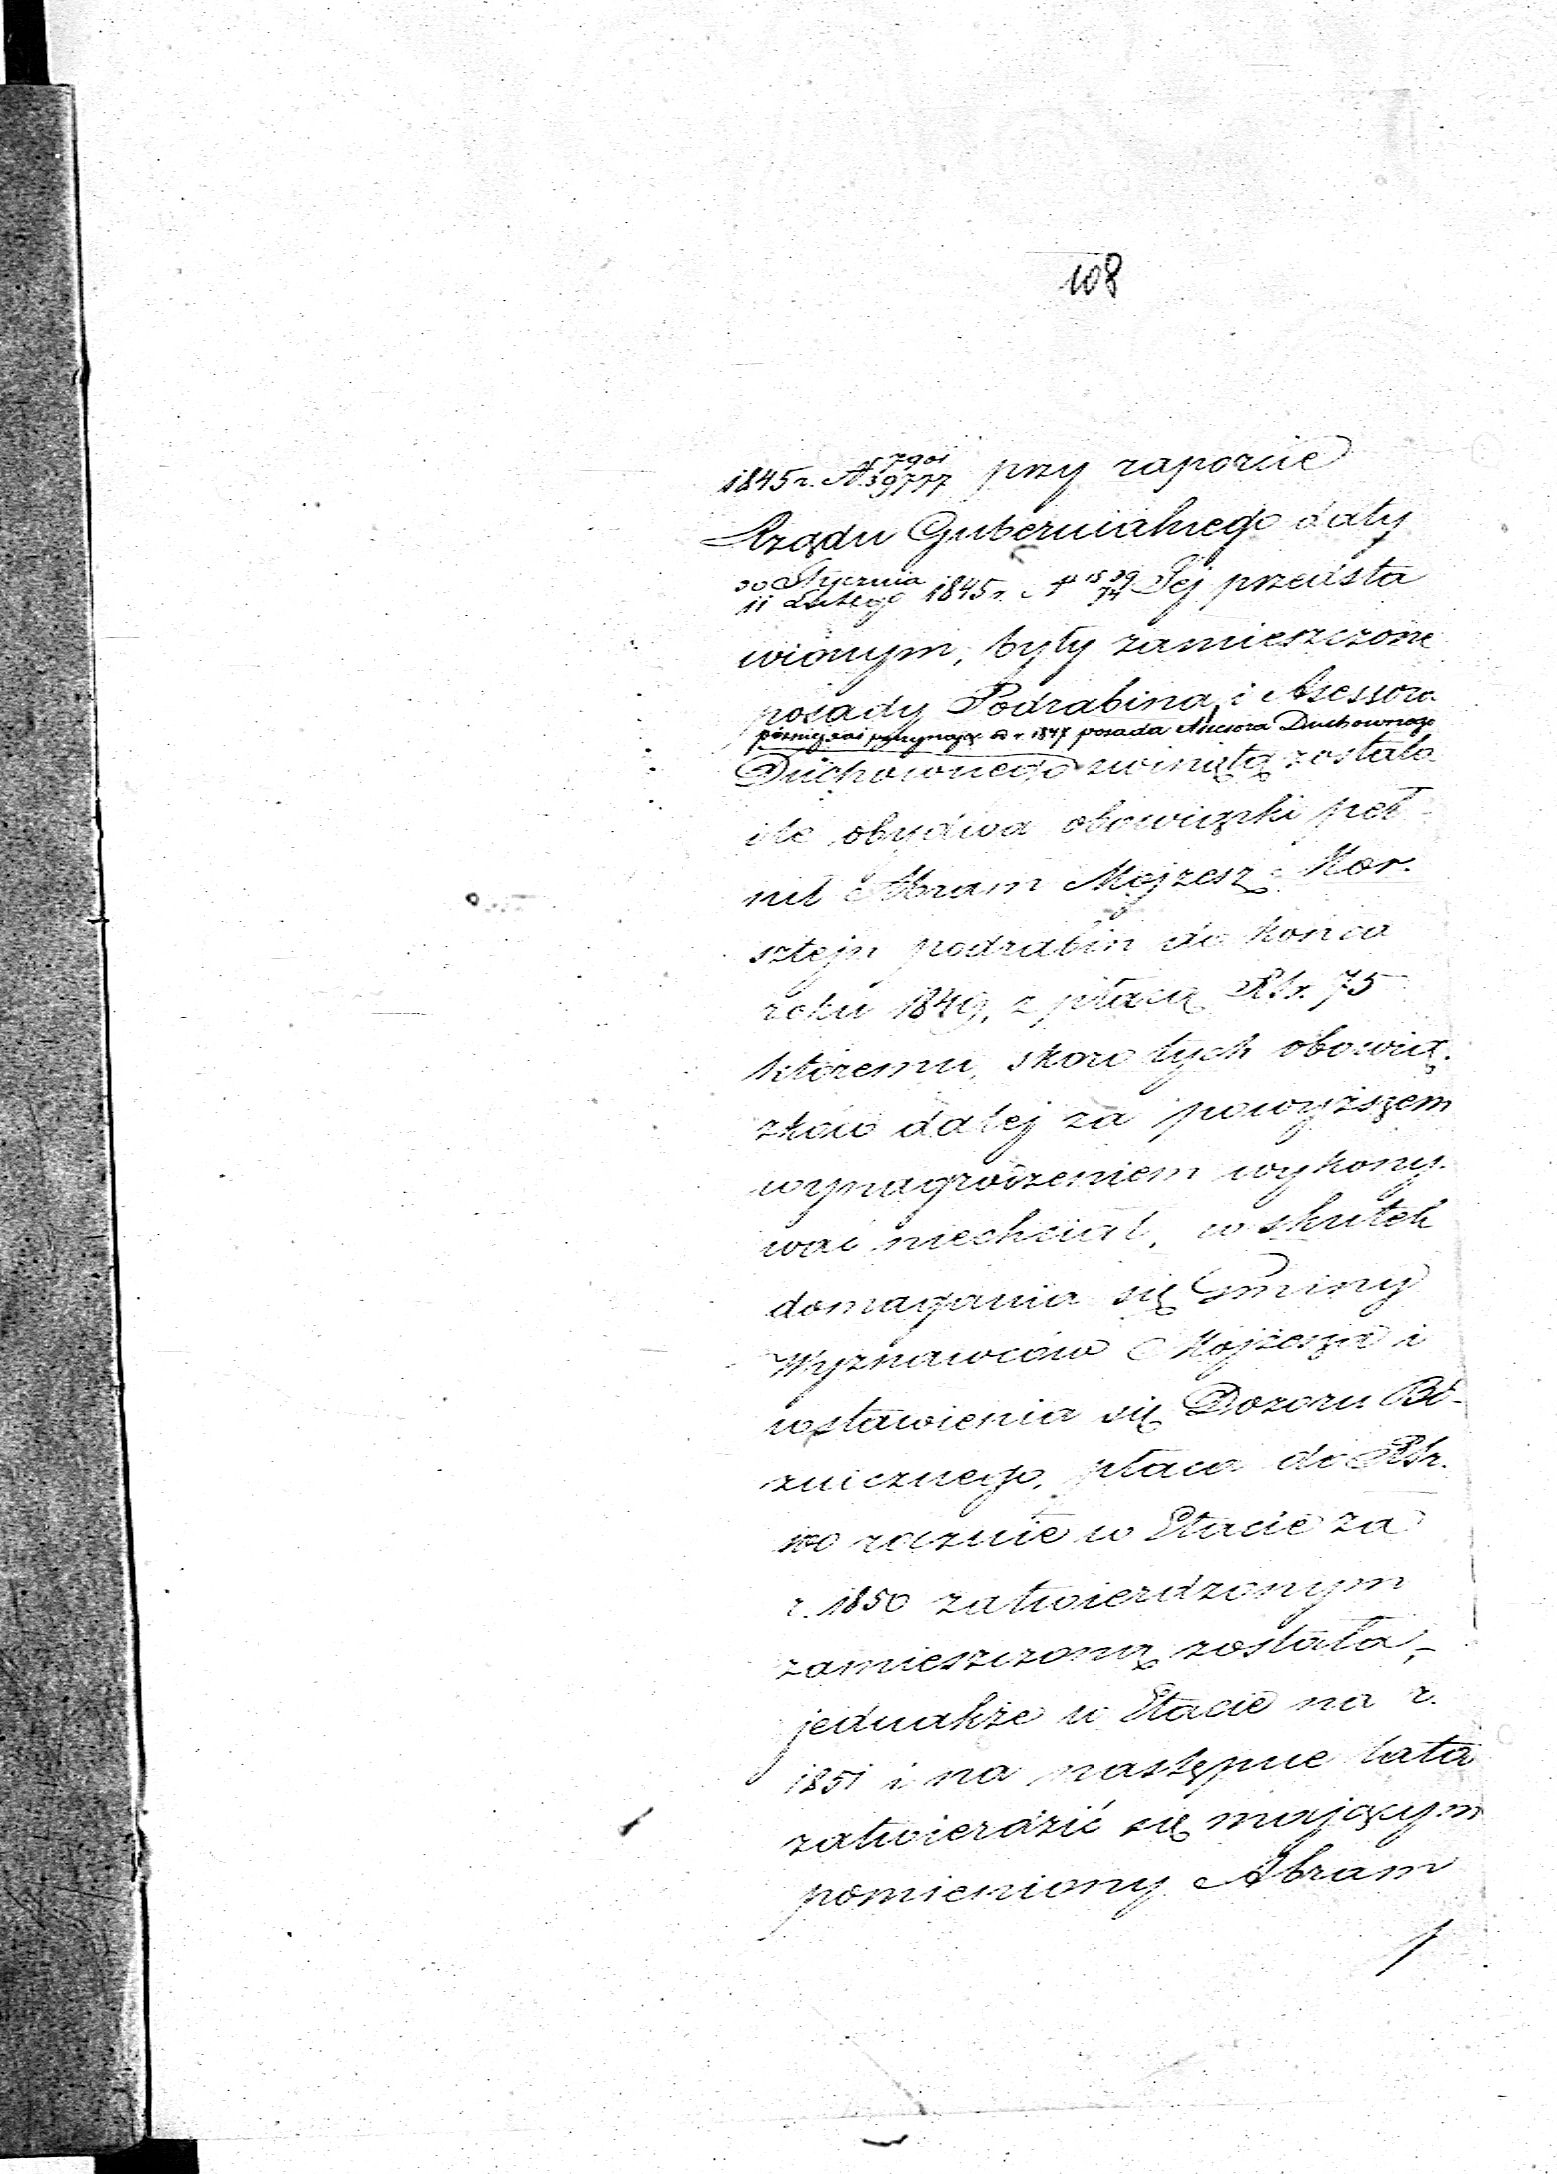 108
1845 r. N 7901/39777 przy raporcie
Rządu Gubernialnego daty
30 Stycznia/11 Lutego 1845 r. N 1539/74 Tej przedsta
wionym, były zamieszczone
posady Podrabina i Asessora
później zaś poczynając od r 1847 posada Assesora Duchownego
Duchownego zwiniętą została
ile obydwa obowiązki peł-
nił Abram Mojzesz Kor-
sztejn podrabin do końca
roku 1849, z płacą RSr. 75
któremu, skoro tych obowią-
zków dalej za powyższem
wynagrodzeniem wykony-
wać niechciał, w skutek
domagania się Gminy
Wyznawców Mojżesza i
wstawienia się Dozoru Bó-
żnicznego, płaca do RSr.
rocznie w Etacie za
r. 1850 zatwierdzonym
zamieszczoną została,-
jednakże w Etacie na r.
1851 i na następne lata
zatwierdzić się mającym
pomieniony Abram